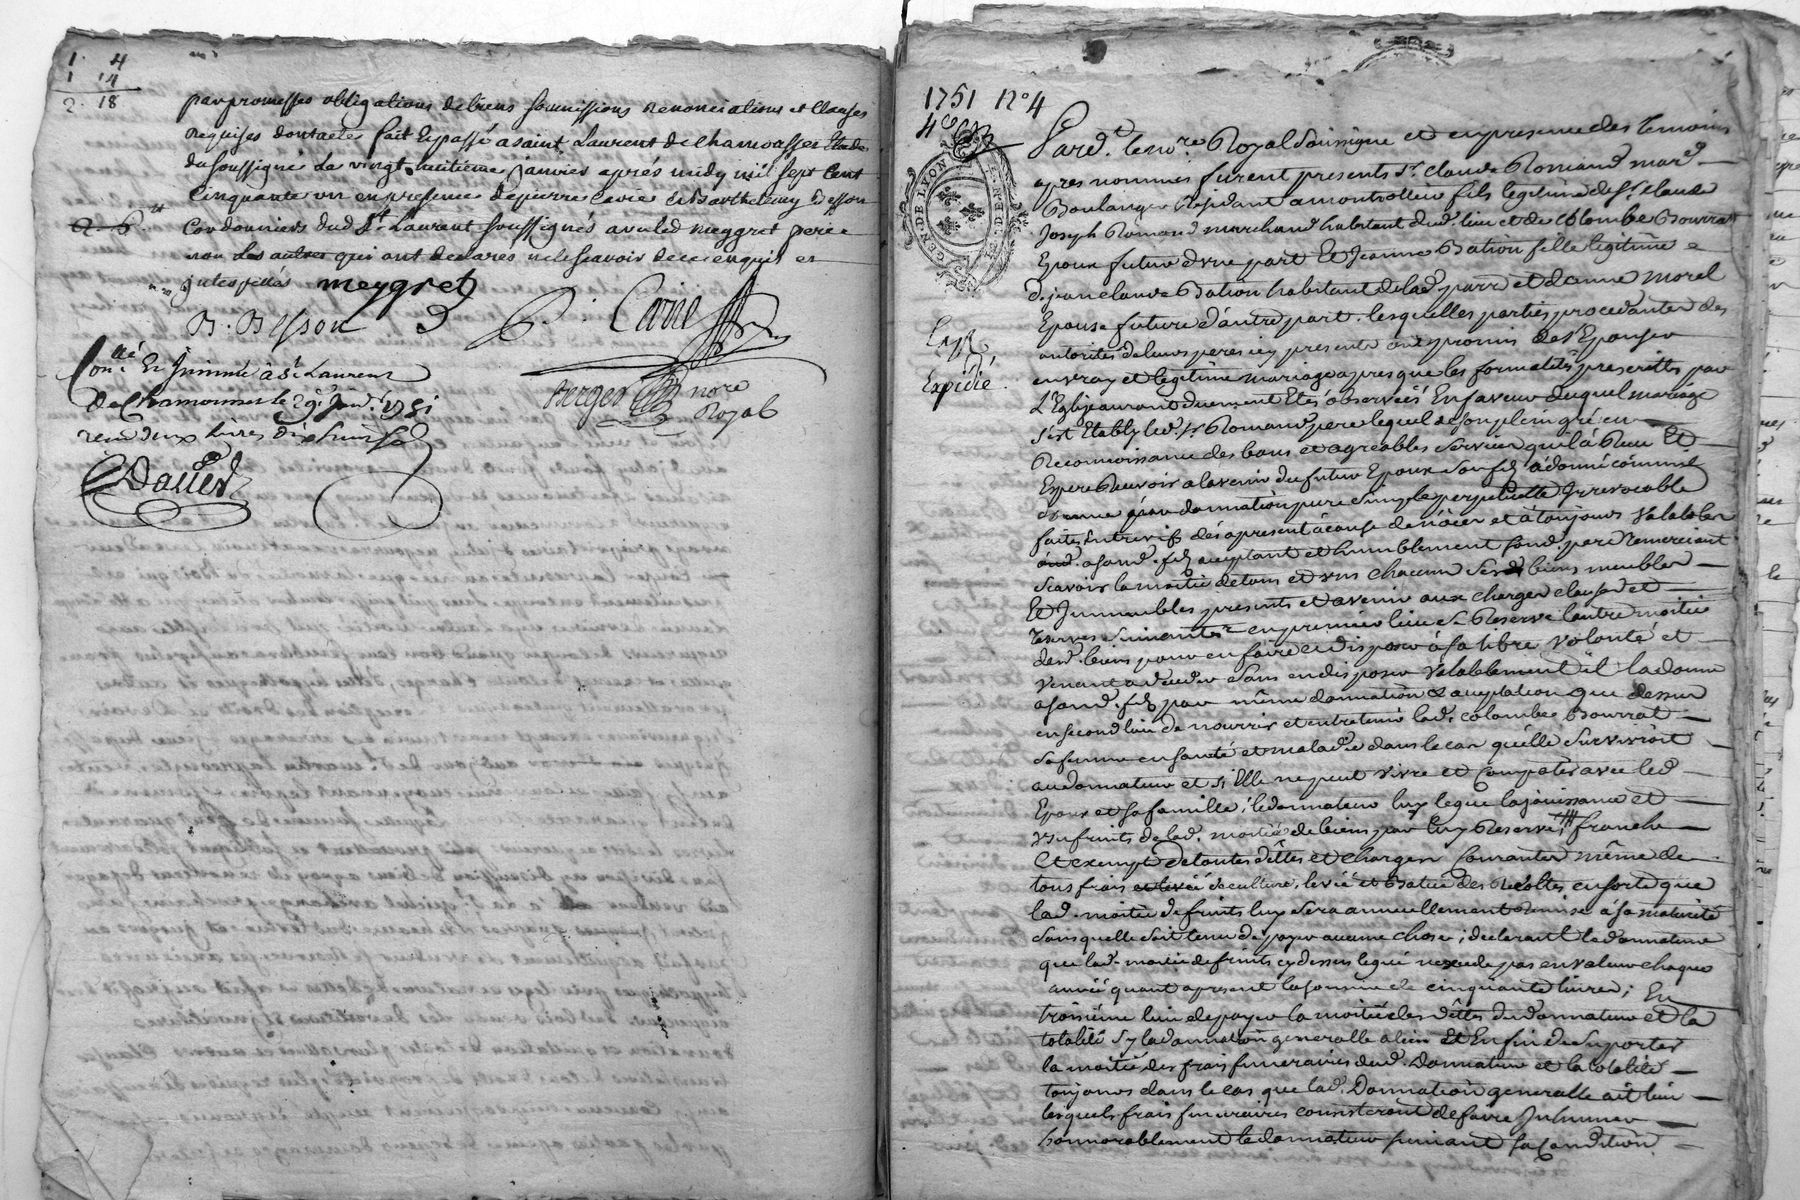 1 4
1 14
2 18
par promesses obligations de biens soumissions renonciations et Clauses
requises dont acte fait et passé a saint Laurent de chamousset Etude
du soussigné Le vingt huitieme janvier aprés midy mil sept Cent
Cinquante un en presence de pierre Carié et Barthelemy Besson
Cordonniers dud St. Laurent soussignés avec led meygret pere
non Les autres qui ont declarés ne le scavoir de ce enquis et
jnterpellés meygret
B. Besson P. Carié
Con.lé Et jnsinué à St. Laurent
de Chamousset le 29e janv. 1751
reçu deux livres dix huit sols
Dauer
Berger nore
Royal
1751 No 4
4
GEN. DE LYON
Exp
Expédié
Pard. le no.re Royal soussigné et en presence des temoins
apres nommés furent presents Sr. claude Romand mard.
Boulanger residant a montrottier fils legitime de Sr. claude
Joseph Romand marchand habitant dud. lieu et de Colombe Bourrat
Epoux futur d'une part Et Jeanne Bation fille legitime
de jean claude Bation habitant de lad. parr. et d'anne morel
Epouse future d'autre part. lesquelles parties procedantes des
autorités de leurs peres icy presents ont promis de s'Epouser
en vray et legitime mariage apres que les formalités prescrittes par
L'Eglise auront duement Etés observées En faveur duquel mariage
s'est Etably led. Sr. Romand pere lequel de son plein gré en
Reconnoissance des bons et agreables services qu'il a Reçu Et
Espere Recevoir a l'avenir du futur Epoux son fils a donné comme il
donne par donnation pure simple perpetuelle Irrevocable
faite Entre vifs dés apresent a cause de nôces et à toujours Valable
aud. fils acceptant et humblement sond. pere remerciant
Scavoir la moitié de tous et uns chacuns ses biens meubles
Et Immeubles presents et avenir aux charges clauses et
reserves suivantes en premier lieu se Reserve l'autre moitié
desd. biens pour en faire et disposer à sa libre volonté et
venant a deceder sans en disposer Valablement il la donne
a sond. fils par même donnation et acceptation que dessus
en second lieu de nourrir et entretenir lad. colombe Bourrat
sa femme en santé et maladie dans le cas qu'elle survivroit
au donnateur et si Elle ne peut vivre et Compatir avec led
Epoux et sa famille, le donnateur luy legue la jouissance et
usufruits de lad. moitié de biens par luy Reservé, franche
Et exempt de toutes dêttes et charges Courantes même de
tous frais de culture, levée et Batue des Recoltes en sorte que
lad. moitié de fruits luy sera annuellement remise à sa maturité
sans quelle soit tenue de payer aucune chose; declarant le donnateur
que lad. moitié de fruits cy dessus legué n'excede pas en valeur chaque
année quant apresent la somme de cinquante livres; En
troisieme lieu de payer la moitié des dêttes du donnateur et la
totalité sy la donnation generalle a lieu Et Enfin de suporter
la moitié des frais funeraires dud. donnateur et la totalité
toujours dans le cas que lad. Donnation generalle ait lieu
lesquels frais funeraires consisteront de faire Inhumer
honnorablement le donnateur suivant sa Condition.